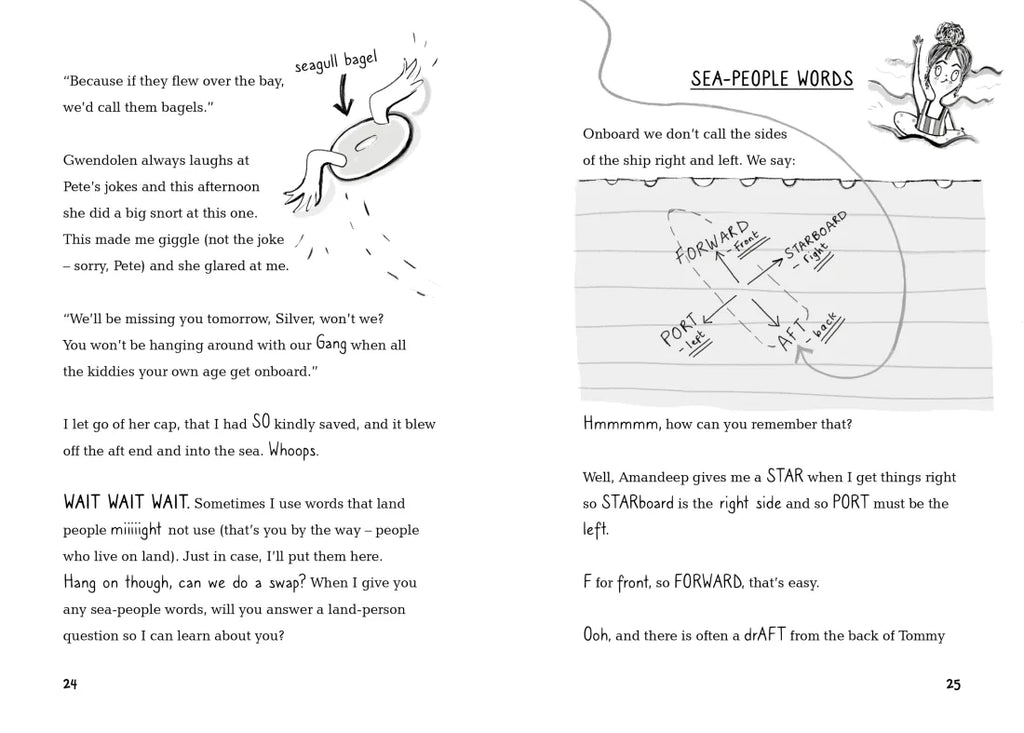 seagull bagel
“Because if they flew over the bay,
we’d call them bagels.”
Gwendolen always laughs at
Pete’s jokes and this afternoon
she did a big snort at this one.
This made me giggle (not the joke
– sorry, Pete) and she glared at me.
“We’ll be missing you tomorrow, Silver, won’t we?
You won’t be hanging around with our Gang when all
the kiddies your own age get onboard.”
I let go of her cap, that I had SO kindly saved, and it blew
off the aft end and into the sea. Whoops.
WAIT WAIT WAIT. Sometimes I use words that land
people miiiiight not use (that’s you by the way – people
who live on land). Just in case, I’ll put them here.
Hang on though, can we do a swap? When I give you
any sea-people words, will you answer a land-person
question so I can learn about you?
24
SEA-PEOPLE WORDS
Onboard we don’t call the sides
of the ship right and left. We say:
FORWARD
- front
STARBOARD
- right
PORT
- left
AFT
- back
Hmmmmm, how can you remember that?
Well, Amandeep gives me a STAR when I get things right
so STARboard is the right side and so PORT must be the
left.
F for front, so FORWARD, that’s easy.
Ooh, and there is often a drAFT from the back of Tommy
25